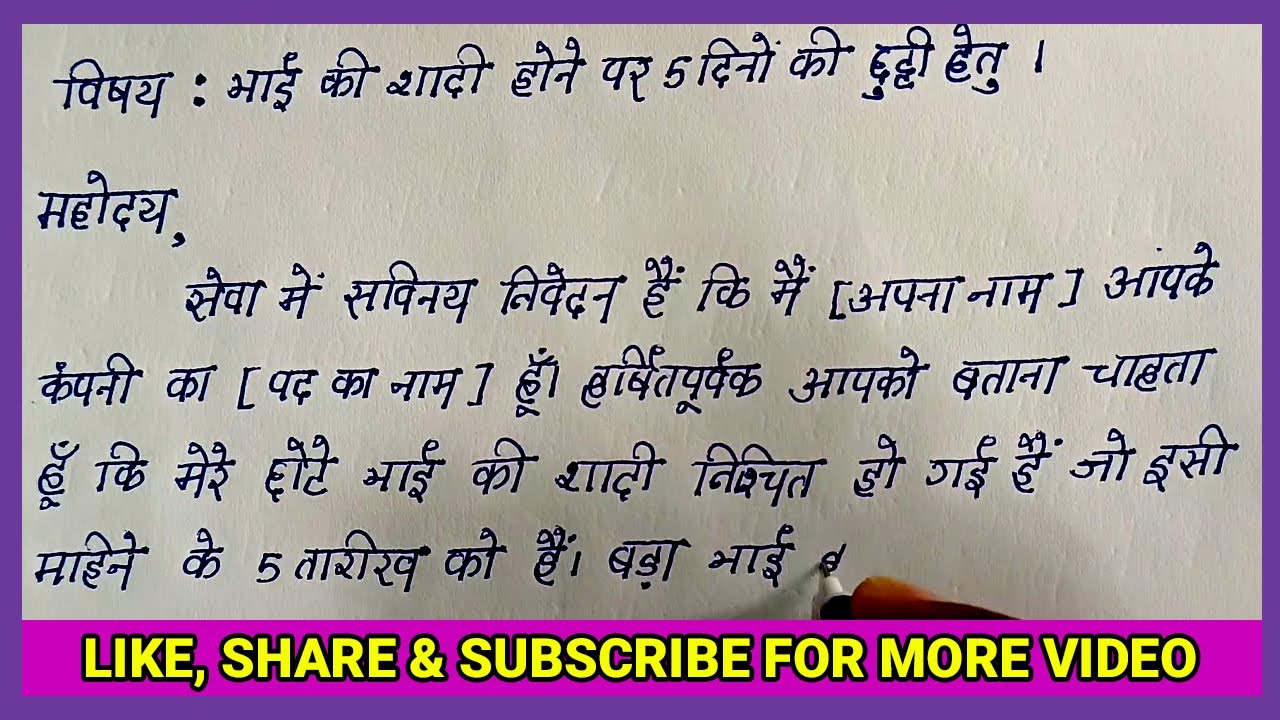 विषय : भाई की शादी होने पर 5 दिनों की छुट्टी हेतु ।
महोदय,
सेवा में सविनय निवेदन हैं कि मैं [अपना नाम] आपके
कंपनी का [पद का नाम] हूँ। हर्षितपूर्वक आपको बताना चाहता
हूँ कि मेरे छोटे भाई की शादी निश्चित हो गई हैं जो इसी
माहिने के 5 तारीख को हैं। बड़ा भाई
LIKE, SHARE & SUBSCRIBE FOR MORE VIDEO